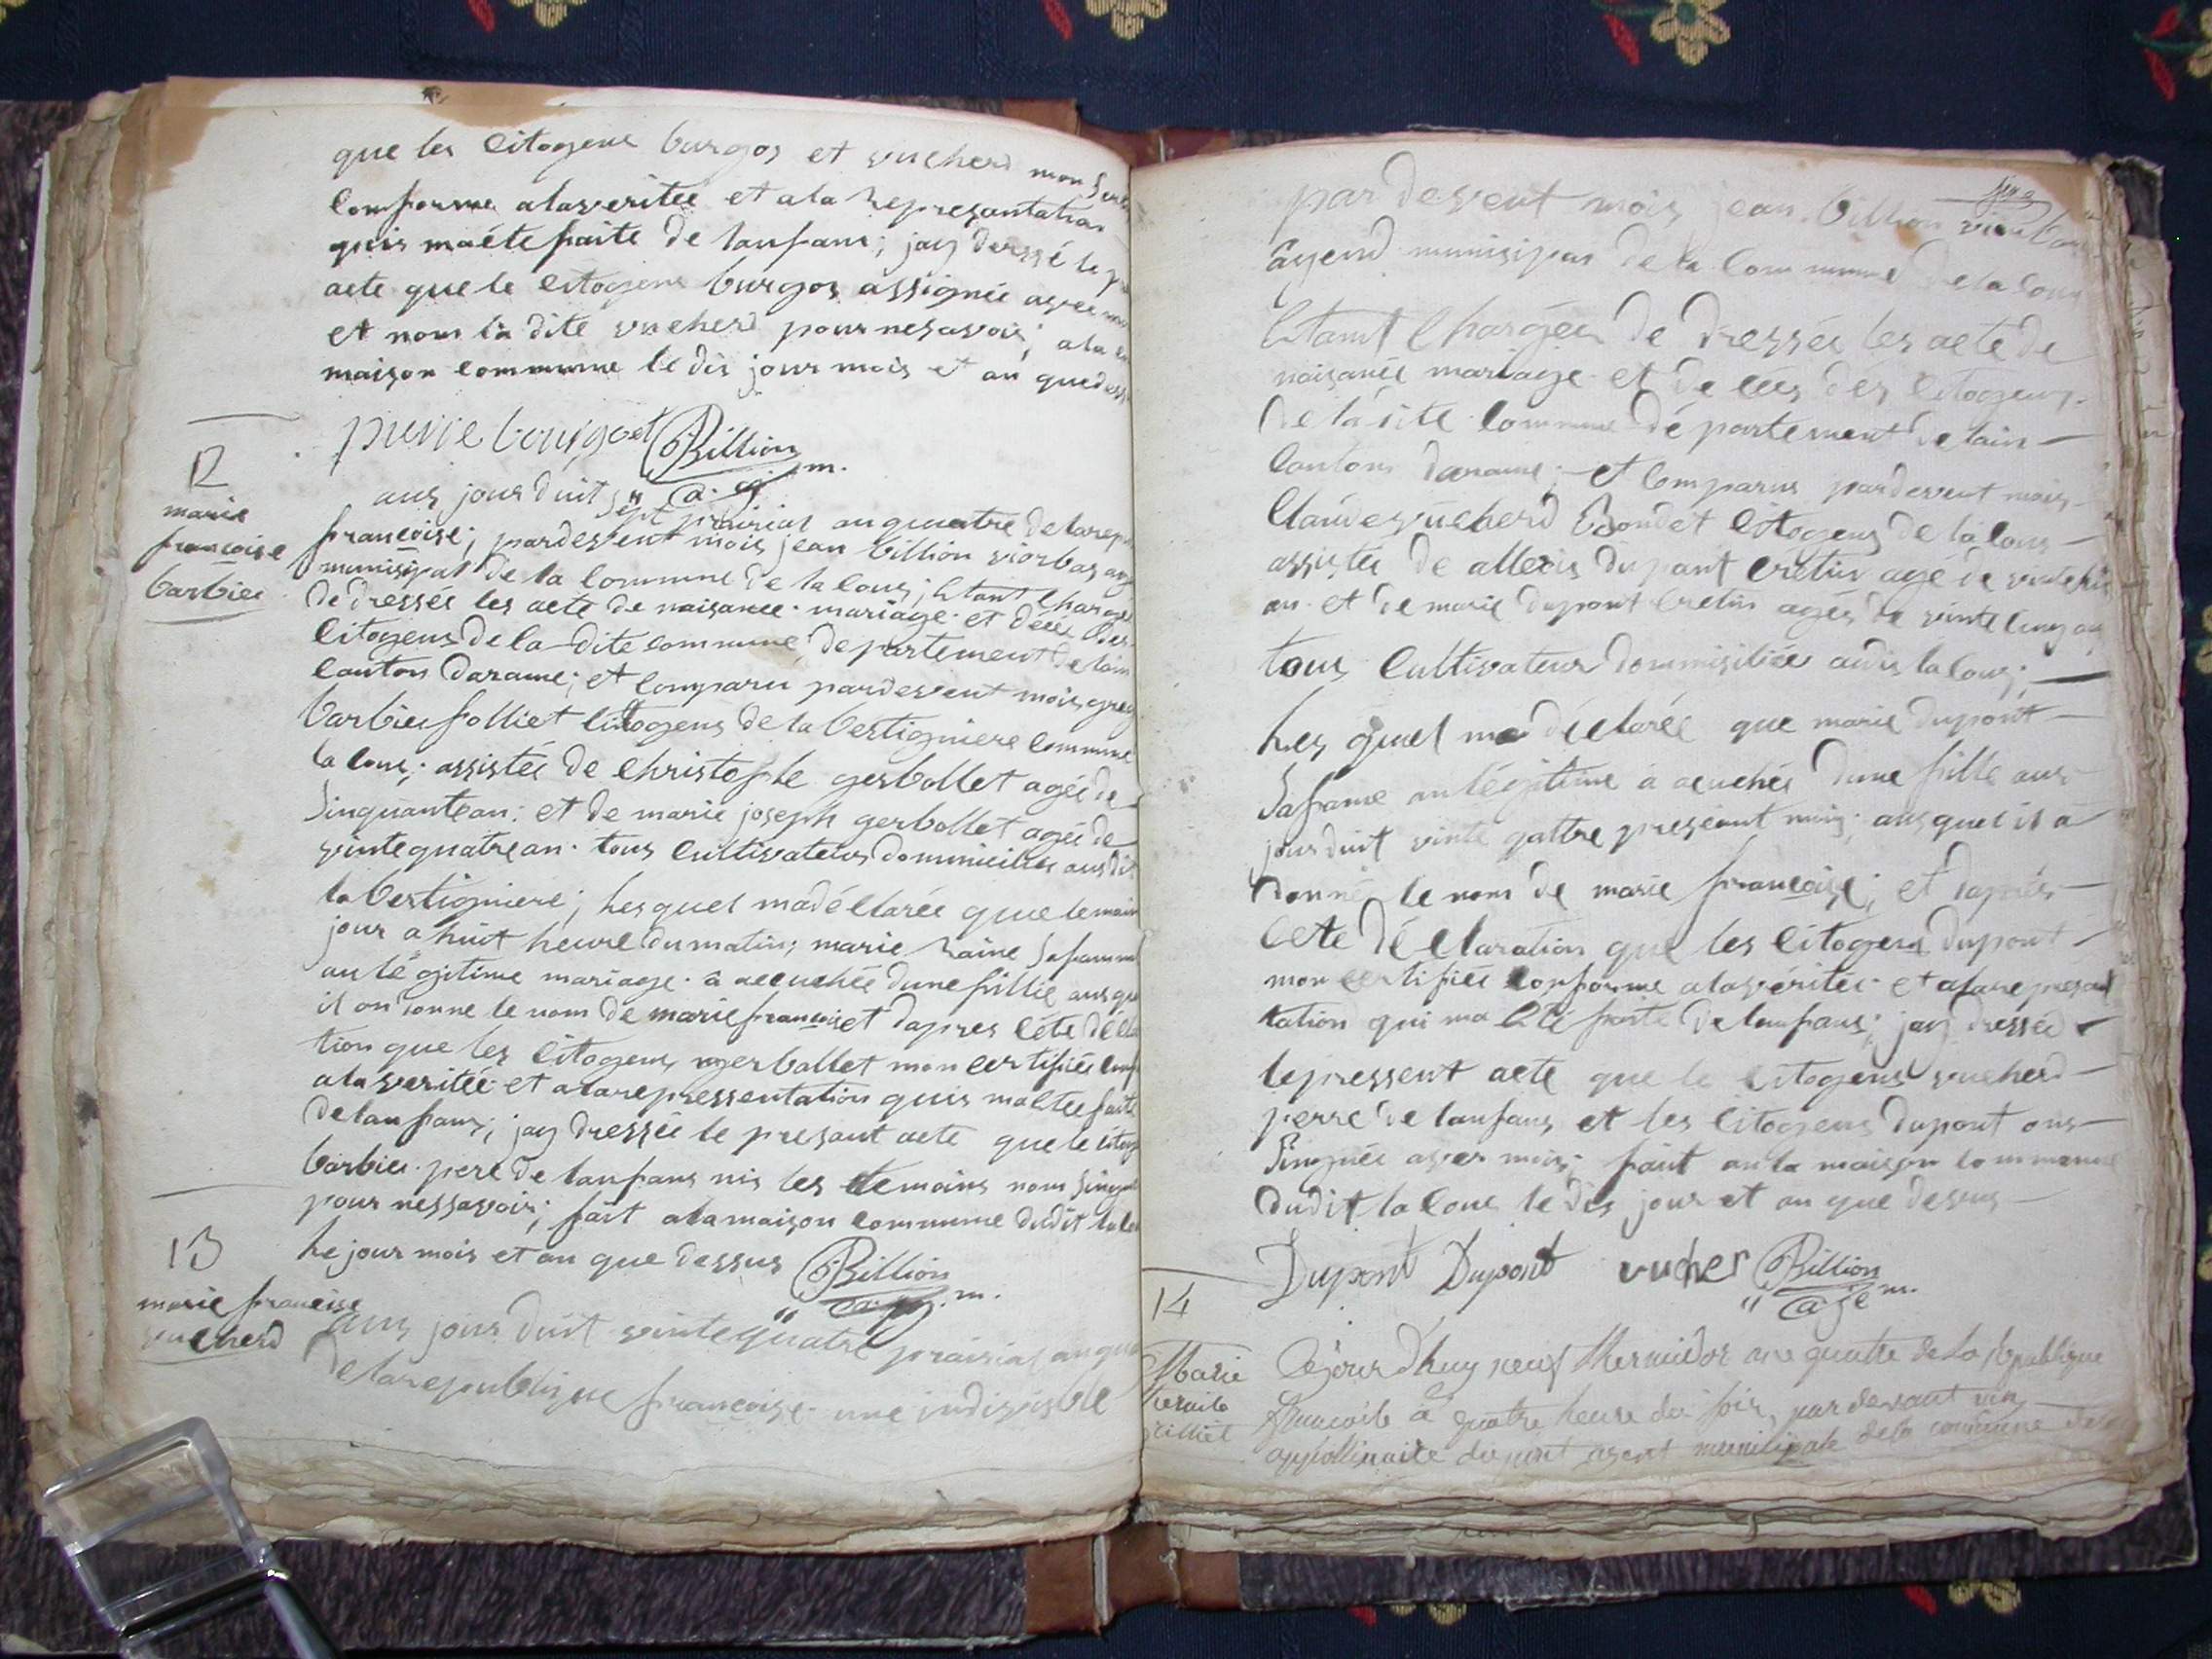 que les Citogens burgos et vucherd mon Sert
Comforme alaveritée et ala representation
quis maéte faite de lanfans; jay derssé le
acte que le Citogens burgos assignée avec
et nom la dite vucherd pour nesavoir; ala
maison commune le dis jour mois et an quedess
pierre bourgoet Billion
a. g. m.
12
marie
francoise
barbier
aus jourduit sept prairial anquatre delarep
francoise; pardevent mois jean billion viorbas
munisipal de la Commune de la Cous; Etant Charge
de dressés les acte de naisance mariage et decé des
Citogens de la dite commune, departement de lain
Canton darame; et comparu pardevent mois
barbier folliet Citogens de la bertigniere commune
la Cous; assistée de Christophe gerbollet agée de
Sinquantean; et de marie joseph gerbollet agée de
vintequatrean tous Cultivateurs dommicilies ausdit
la bertigniere; lesquel madéclarée que lemain
jour a huit heure dumatin; marie raine Safamme
anlégitime mariage a accuchée dunefillie ausque
il on donne le nom de mariefrancoiset dapres Céte décla
tion que les Citogens gerbollet mon certifiée Conf
alaveritée et alarepressentation quis maétée faite
delanfans; jay dressée le presant acte que le Citog
barbier pere de lanfans nis les temoins nom Singnée
pour nessavoir; fait alamaison commune dudit lalo
le jour mois et an que dessus Billion
a. g. m.
13
marie francoise
vucherd
aus jour duit vintequatre prairial anqua
delarepublique francoise une indivisible
pardevent mois jean billion viorbas
agend munisipas de la Commune de la Cous
Etant Chargée de dressée les acte de
naisance mariage et de cées des Citogens
de la dite Commune département de lain
Canton darame; et Comparus pardevent mois
Claudevucherd Bondet Citogens de la Cous
assistée de allexis dupont Crétin agé de vintehuit
an et de marie dupont Cretin agés de vintecinq an
tous Cultivateur dommisiliée audis la Cous;
Les quel ma déclarée que marie dupont
Safame anlégitime a acuchée dune fille aus
jourduit vinte qattre preséant mois; ausquel il a
donné le nom de marie francoise; et daprés
Cete déclaration que les Citogens dupont
mon certifiée conforme alavéritée et alarepresan
tation qui ma été faite de lanfans; jay dressée
lepressent acte que le Citogens vucherd
perre de lanfans et les Citogens dupont ons
Singnée avec mois; faint an la maison commune
dudit la Cous le dis jour et an que dessus
Dupont Dupont vucher Billion
age m.
14
Marie
Cejour dhuy neuf thermidor an quatre de la Republique
francoise a quatre heure du soir, par devant
appollinaire dupont agent municipale de la commune